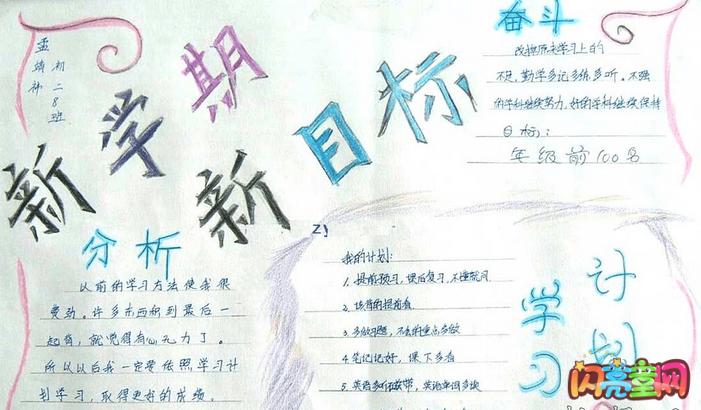 初二8班
孟婧祎
新学期
新目标
奋斗
改掉原来学习上的
不足,勤学多记多练多听。不强
的学科继续努力,好的学科继续保持
目标:
年级前100名
分析
以前的学习方法使我很
费劲。许多东西积到最后一
起背,就觉得有心无力了。
所以以后我一定要依照学习计
划学习,取得更好的成绩。
我的计划:
1.提前预习,课后复习,不懂就问
2.该背的提前背
3.多做习题,不会的重点多做
4.笔记记好,课下多看
5.英语多听磁带,英语单词多读
学习
计划
闪亮童网